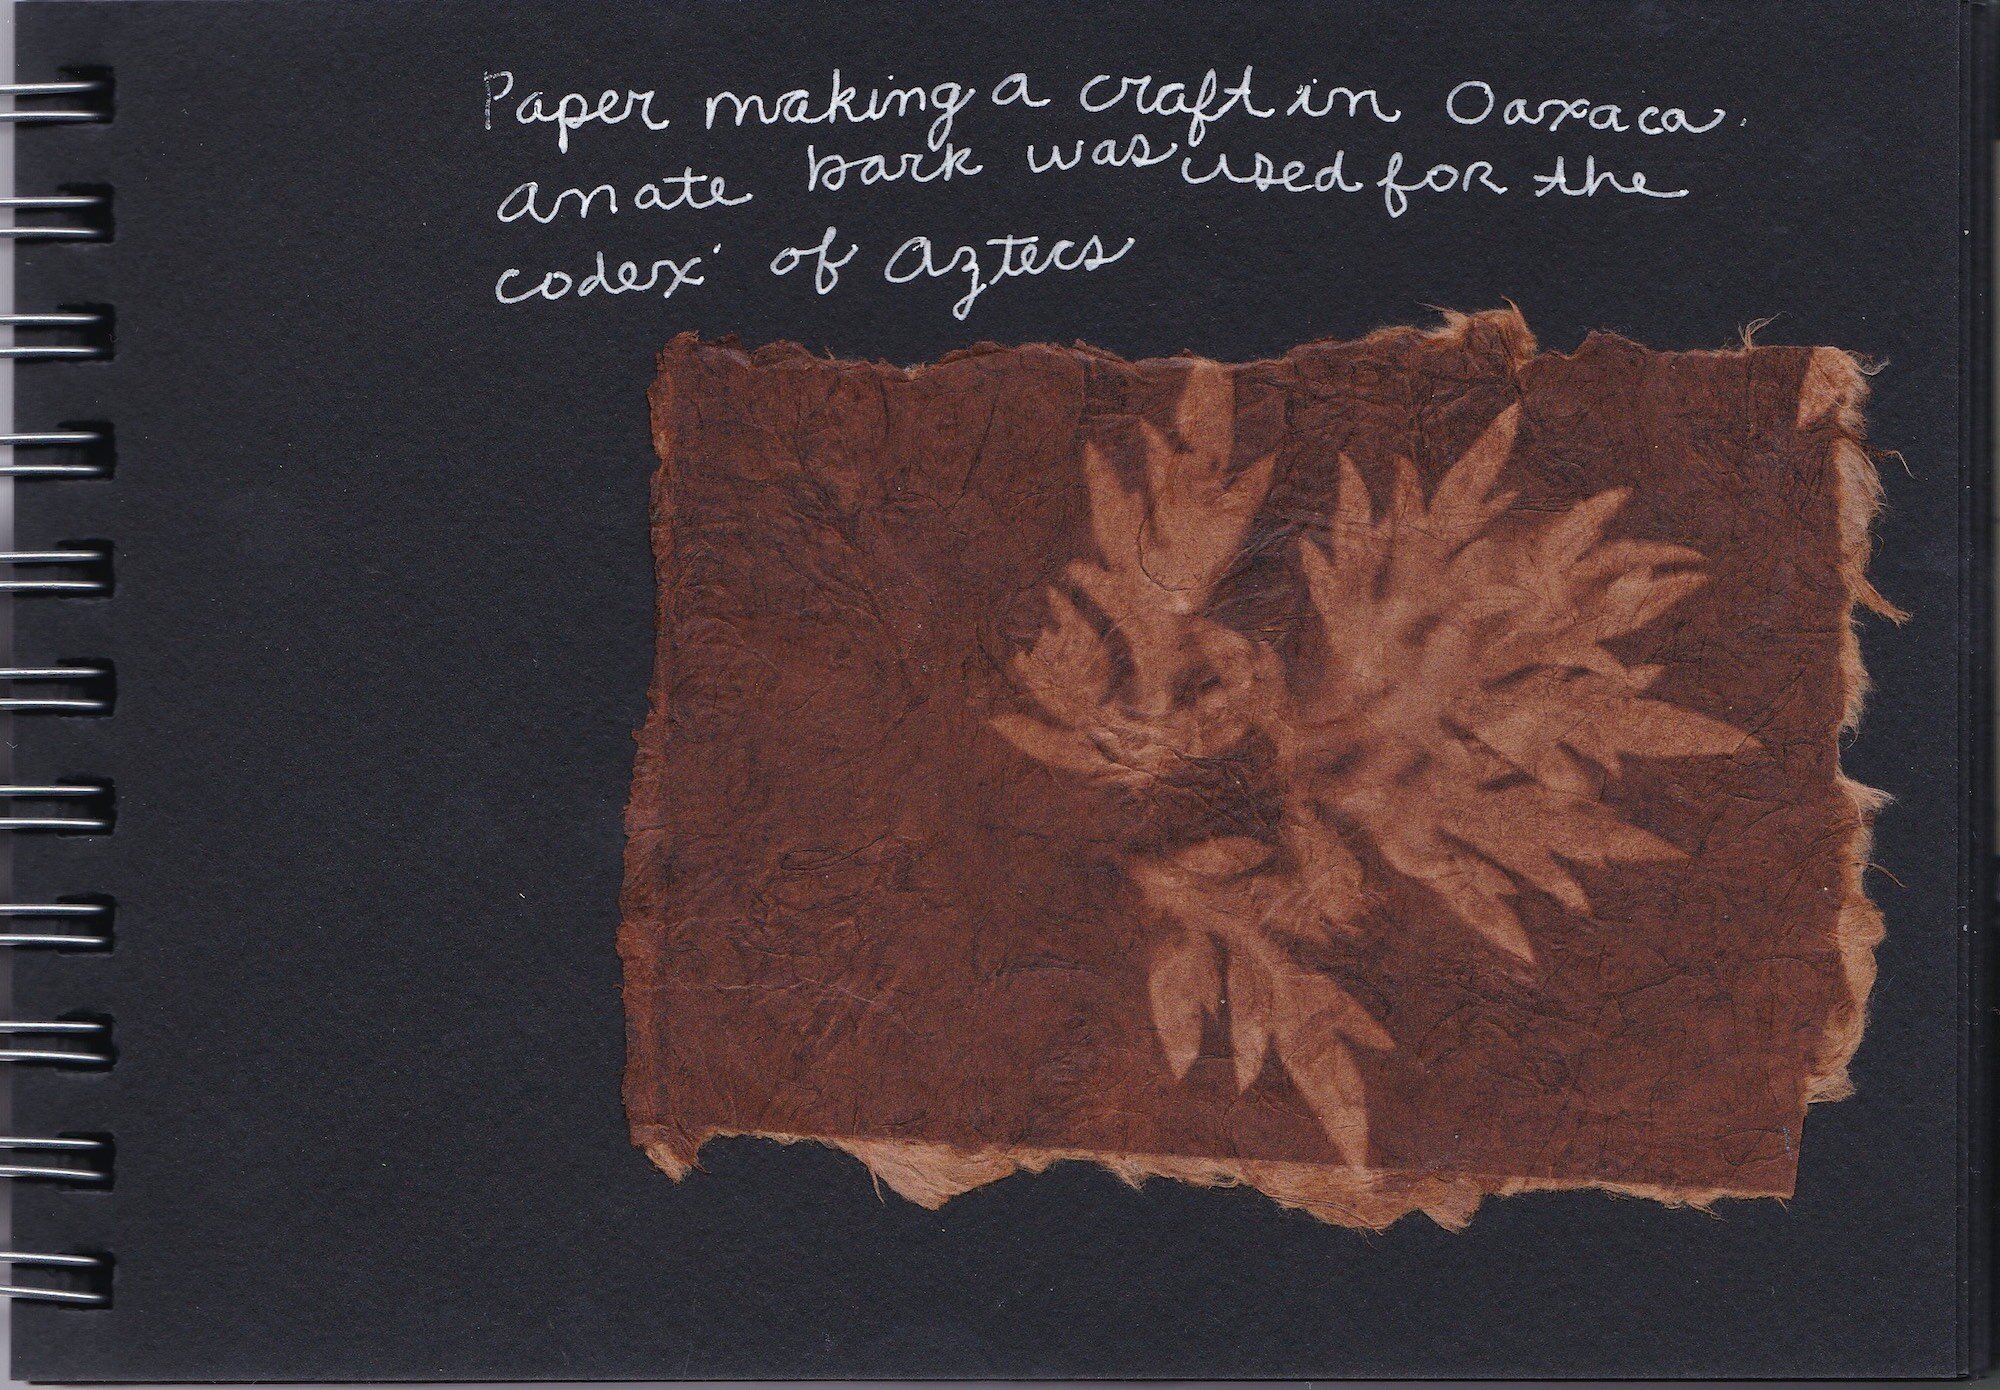 Paper making a craft in Oaxaca.
anate bark was used for the
codex of Aztecs